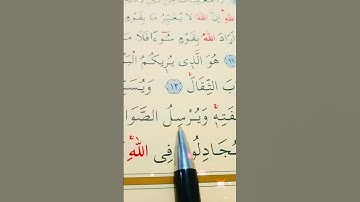 اللّٰهِ اِنَّ اللّٰهَ لَا يُغَيِّرُ مَا بِقَوْمٍ
اَرَادَ اللّٰهُ بِقَوْمٍ سُٓوءًا فَلَا مَرَ
١١ هُوَ الَّذٖى يُرٖيكُمُ الْبَ
بَ الثِّقَالَ ١٢ وَيُسَبِّ
فَتِهٖ وَيُرْسِلُ الصَّوَا
يُجَادِلُونَ فِى اللّٰهِ